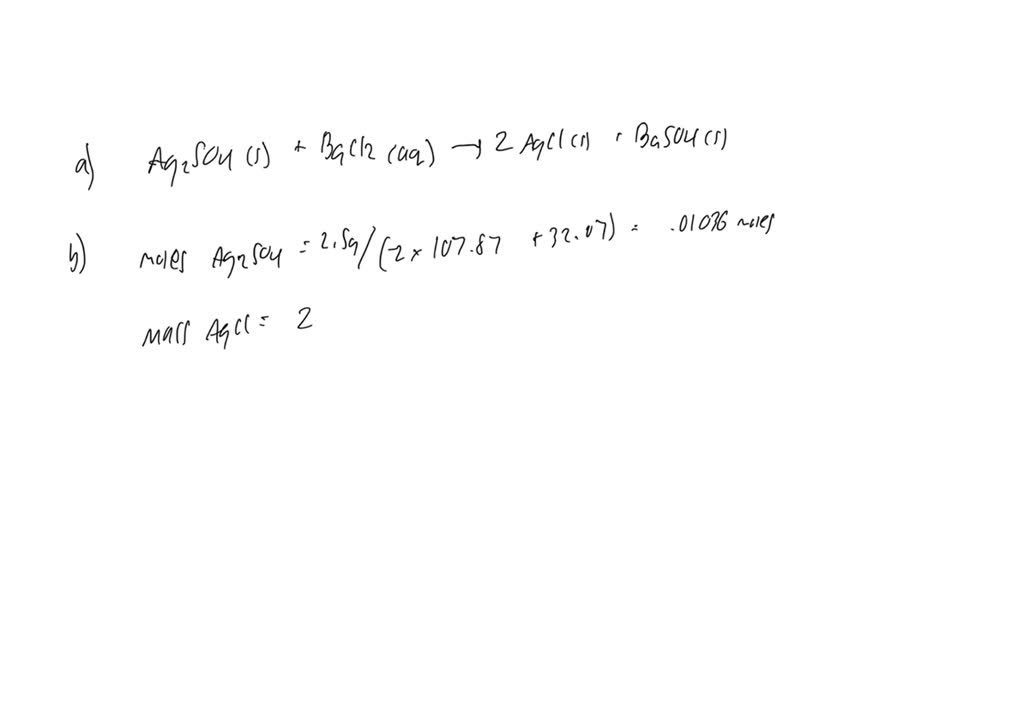 a) Ag2SO4 (s) + BaCl2 (aq) → 2 AgCl (s) + BaSO4 (s)
b) moles Ag2SO4 = 2.5g/(2 × 107.87 + 32.07) = .01036 moles
mass AgCl = 2